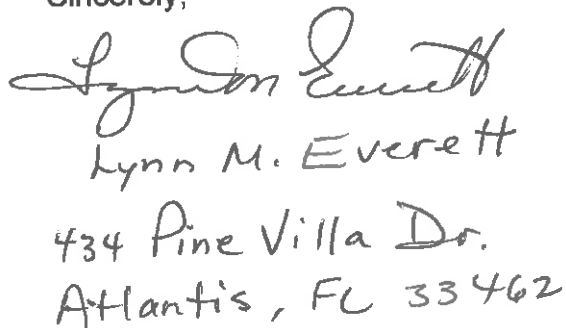 Sincerely,
Lynn M. Everett
Lynn M. Everett
434 Pine Villa Dr.
Atlantis, FL 33462